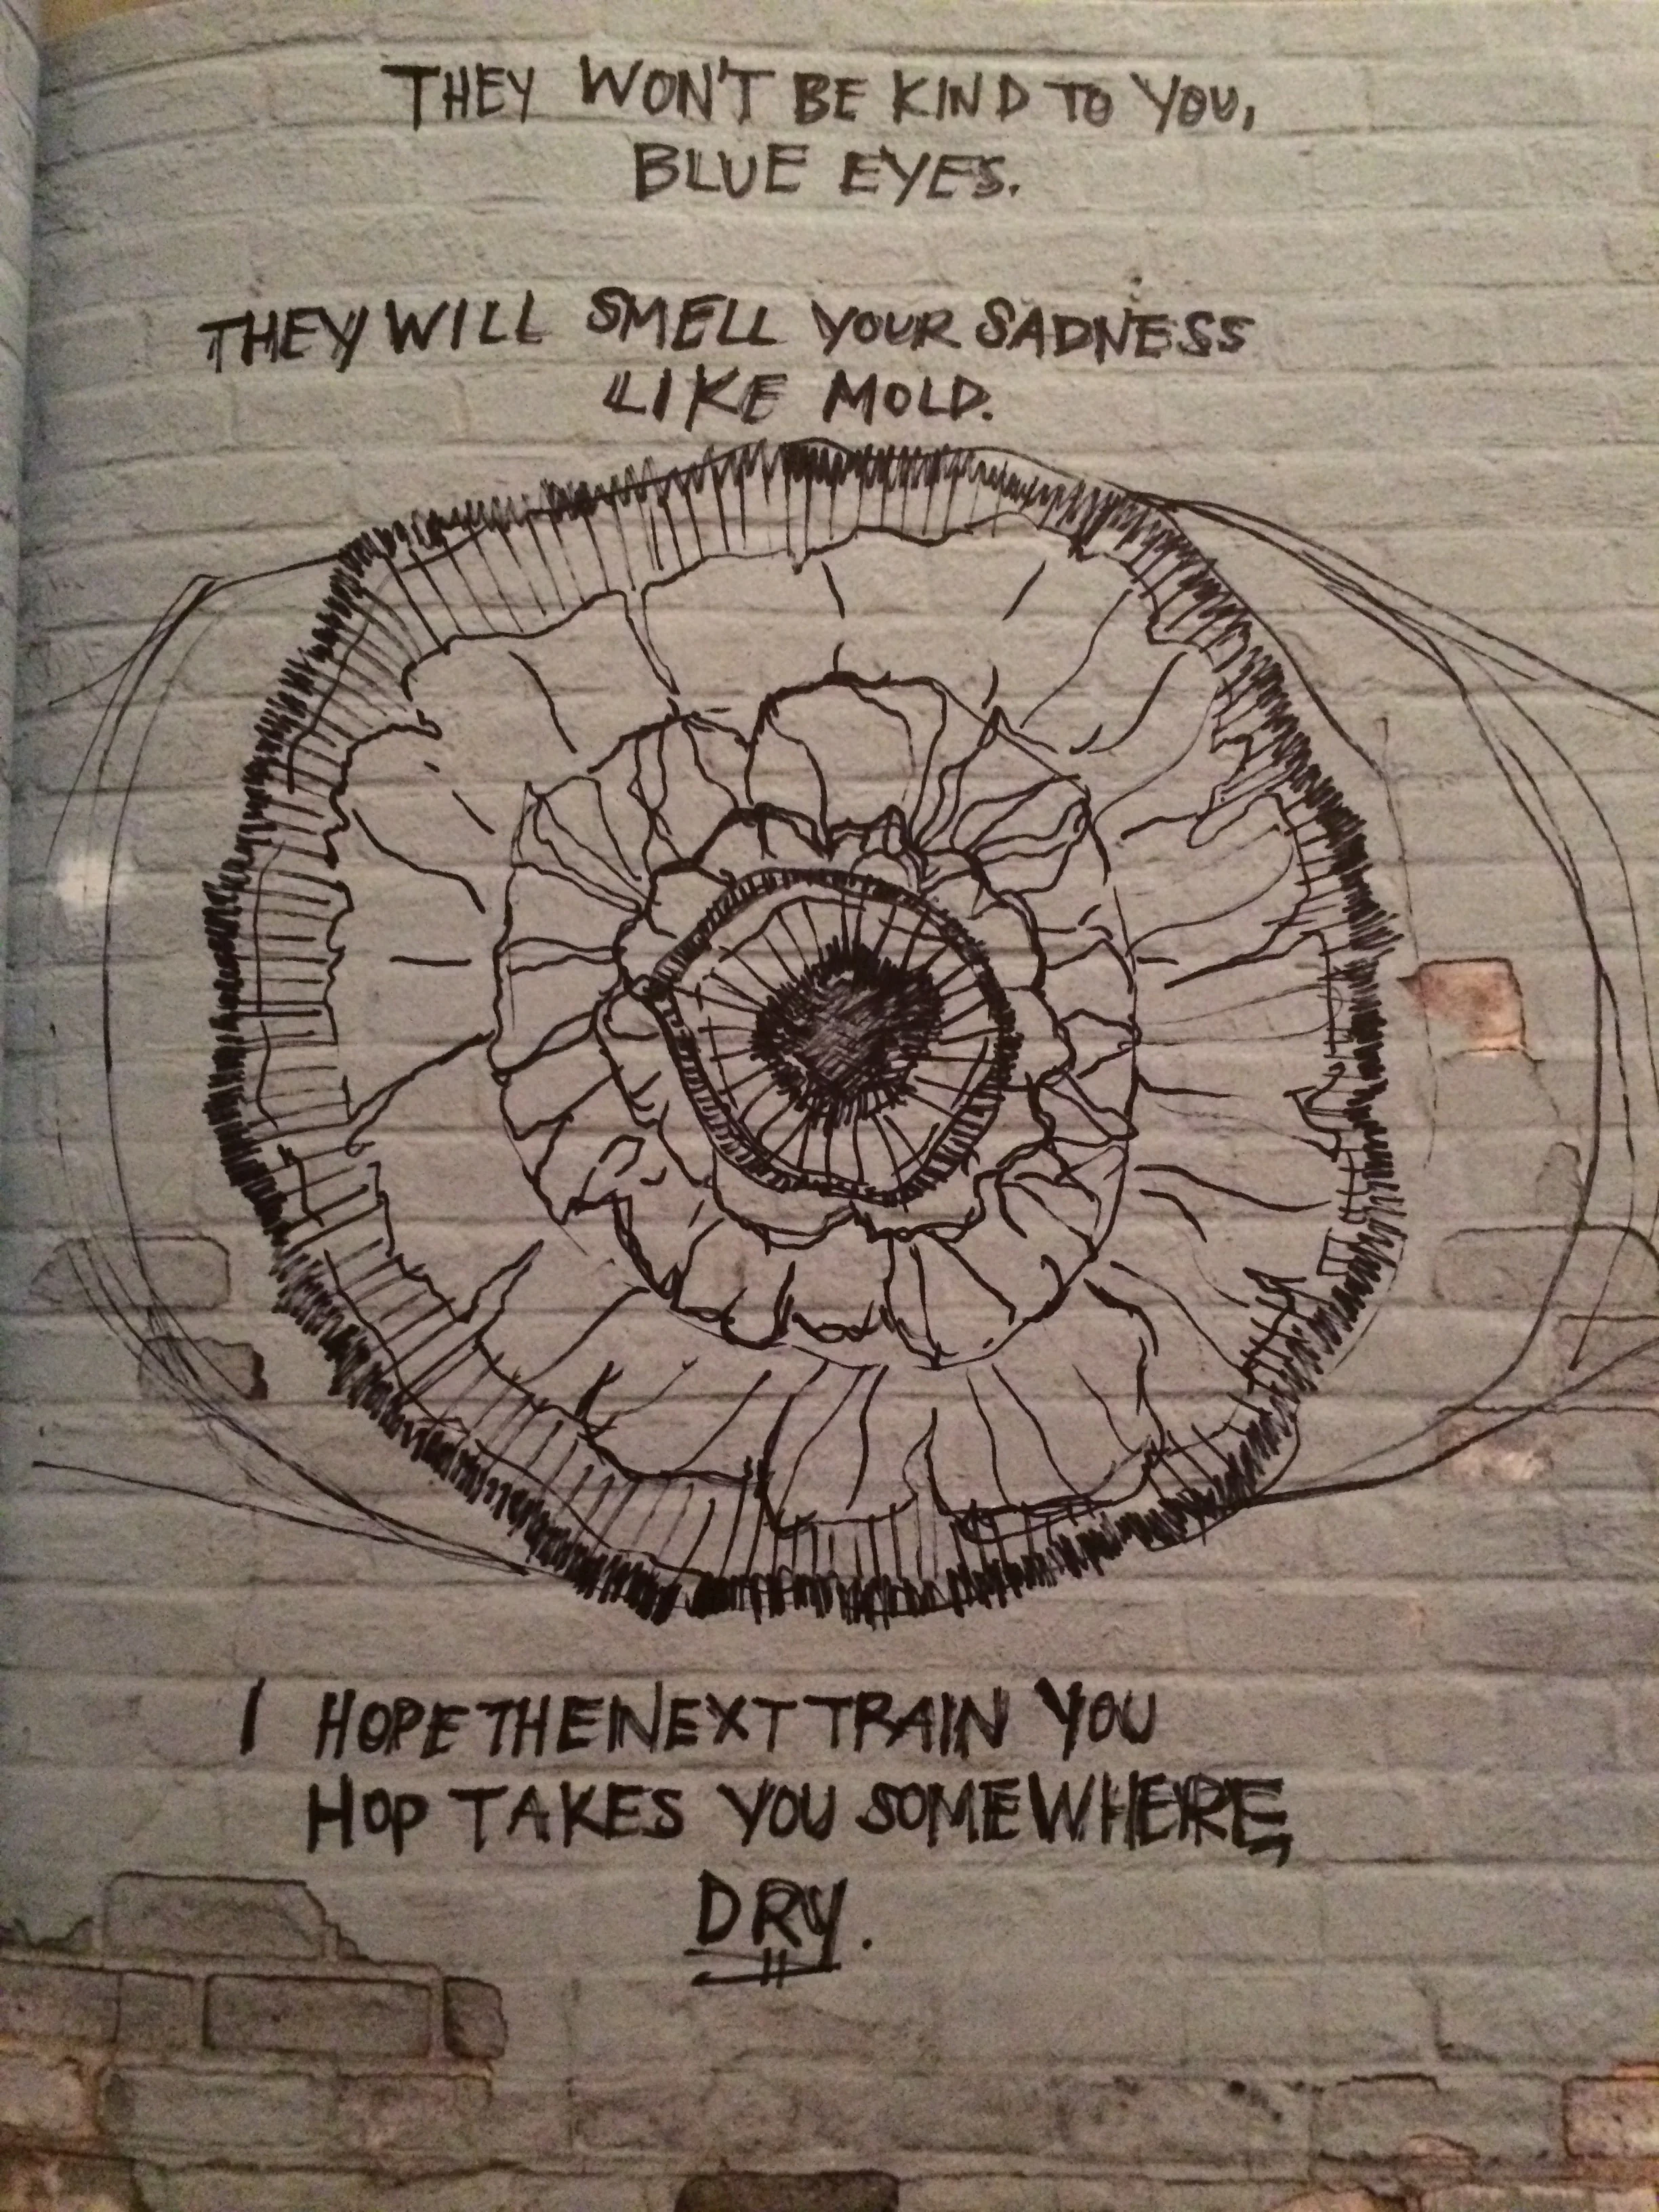 THEY WON'T BE KIND TO YOU,
BLUE EYES.
THEY WILL SMELL YOUR SADNESS
LIKE MOLD.
I HOPE THE NEXT TRAIN YOU
HOP TAKES YOU SOMEWHERE
DRY.